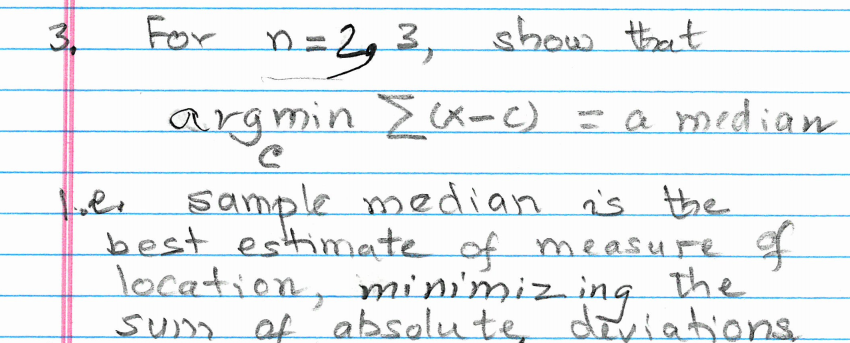 3. For n = 2, 3, show that
argmin Σ(x-c) = a median
c
i.e. sample median is the
best estimate of measure of
location, minimizing the
sum of absolute deviations